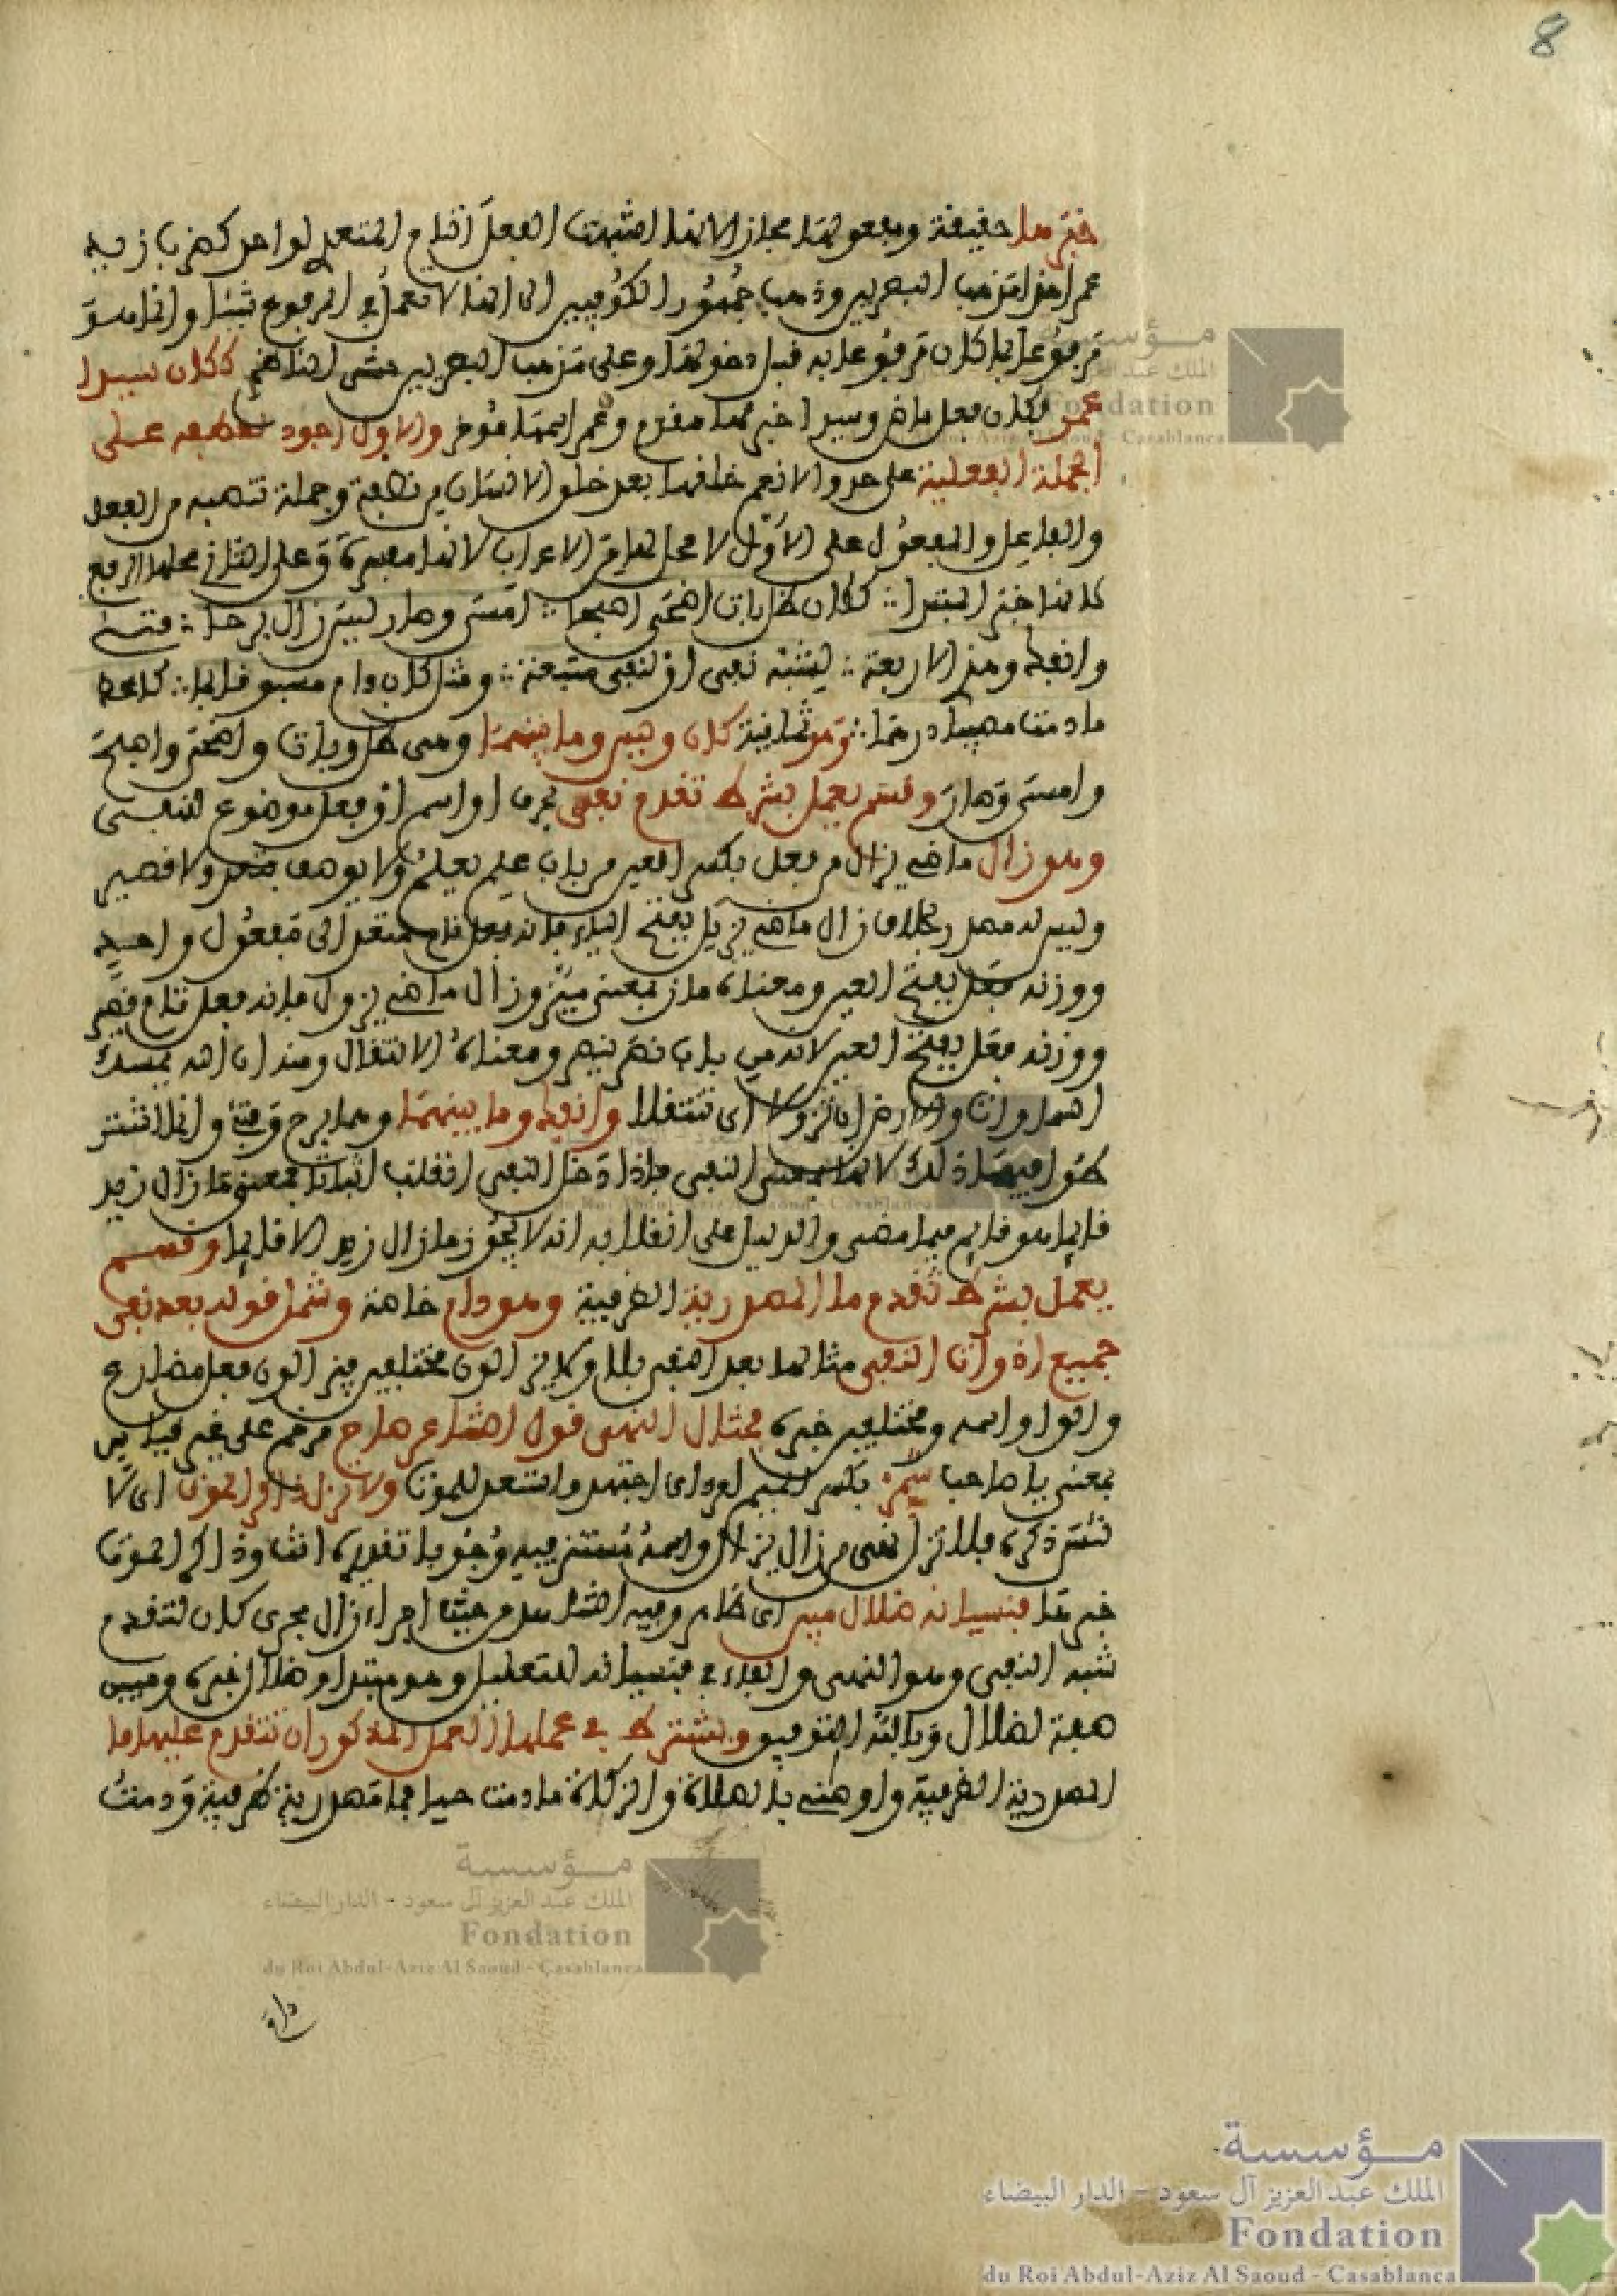 8
خبرها حقيقة ومفعولها مجازا لانها اشبهت الفعل التام المتعدي لواحد كضرب زيد
عمرا هذا مذهب البصريين وذهب جمهور الكوفيين الى انها لا تعمل في المرفوع شيئا وانما هو
مرفوع بما كان مرفوعا به قبل دخولها وعلى مذهب البصريين مشى الناظم ككان سيدا
عمر فكان فعل ماض وسيدا خبرها مقدم وعمر اسمها مؤخر والاول اجود لعطفه على
الجملة الفعلية على حدو والانعم خلقها بعد خلق الانسان من نطفة وجملة تنصبه من الفعل
والفاعل والمفعول على الاول لا محل لها من الاعراب لانها مفسرة وعلى الثاني محلها الرفع
لانها خبر المبتدا ∴ ككان ظل بات اضحى اصبحا ∴ امسى وصار ليس زال برحا ∴ فتئ
وانفك وهذي الاربعة ∴ لشبه نفي او لنفي متبعة ∴ ومثل كان دام مسبوقا بما ∴ كاعط
ما دمت مصيبا درهما ∴ وهو ثمانية كان وليس وما بينهما وهي ظل وبات واضحى واصبح
وامسى وصار وقسم يعمل بشرط تقدم نفي بحرف او اسم او فعل موضوع للنفي
وهو زال ماضي يزال من فعل بكسر العين من باب علم يعلم ولا يوصف بتعد ولا قصير
وليس له مصدر بخلاف زال ماضي يزيل بفتح الياء فانه فعل تام متعد الى مفعول واحد
ووزنه فعل بفتح العين ومعناه ماز بمعنى ميز وزال ماضي يزول فانه فعل تام قصر
ووزنه فعل بفتح العين لانه من باب نصر ينصر ومعناه الانتقال ومنه ان الله يمسك
السماوات والارض ان تزولا اي تنتقلا وانفك وما بينهما وهما برح وفتئ وانما اشتر
طوا فيها ذلك لانها بمعنى النفي فاذا دخل النفي انقلب اثباتا فمعنى ما زال زيد
قايما هو قايم فيما مضى والدليل على انقلابه انه لا يجوز ما زال زيد الا قايما وقسم
يعمل بشرط تقدم ما المصدرية الظرفية وهو دام خاصة وشمل قوله بعد نفي
جميع ادوات النفي مثالها بعد النفي بلا ولا يزالون مختلفين فيزالون فعل مضارع
والواو اسمه ومختلفين خبره ومثال النهي قول الشاعر صاح مرخم على غير قياس
بمعنى يا صاحب شمر بكسر الميم امر اي اجتهد واستعد للموت ولا تزل ذاكر الموت اي لا
تترك ذكره فلا تزل نهي من زال يزال واسمه مستتر فيه وجوبا تقديره انت وذاكر الموت
خبرها فنسيانه ضلال مبين اي ظاهر وفيه الشاهد من حيث اجراء زال مجرى كان لتقدم
شبه النفي وهو النهي والفاء في فنسيانه للتعليل وهو مبتدا وضلال خبره ومبين
صفة لضلال وبالله التوفيق ويشترط في عملها العمل المذكور ان تتقدم عليها ما
المصدرية الظرفية واوصني بالصلاة والزكاة ما دمت حيا فما مصدرية ظرفية ودمت
مؤسسة
الملك عبد العزيز آل سعود - الدار البيضاء
Fondation
du Roi Abdul-Aziz Al Saoud - Casablanca